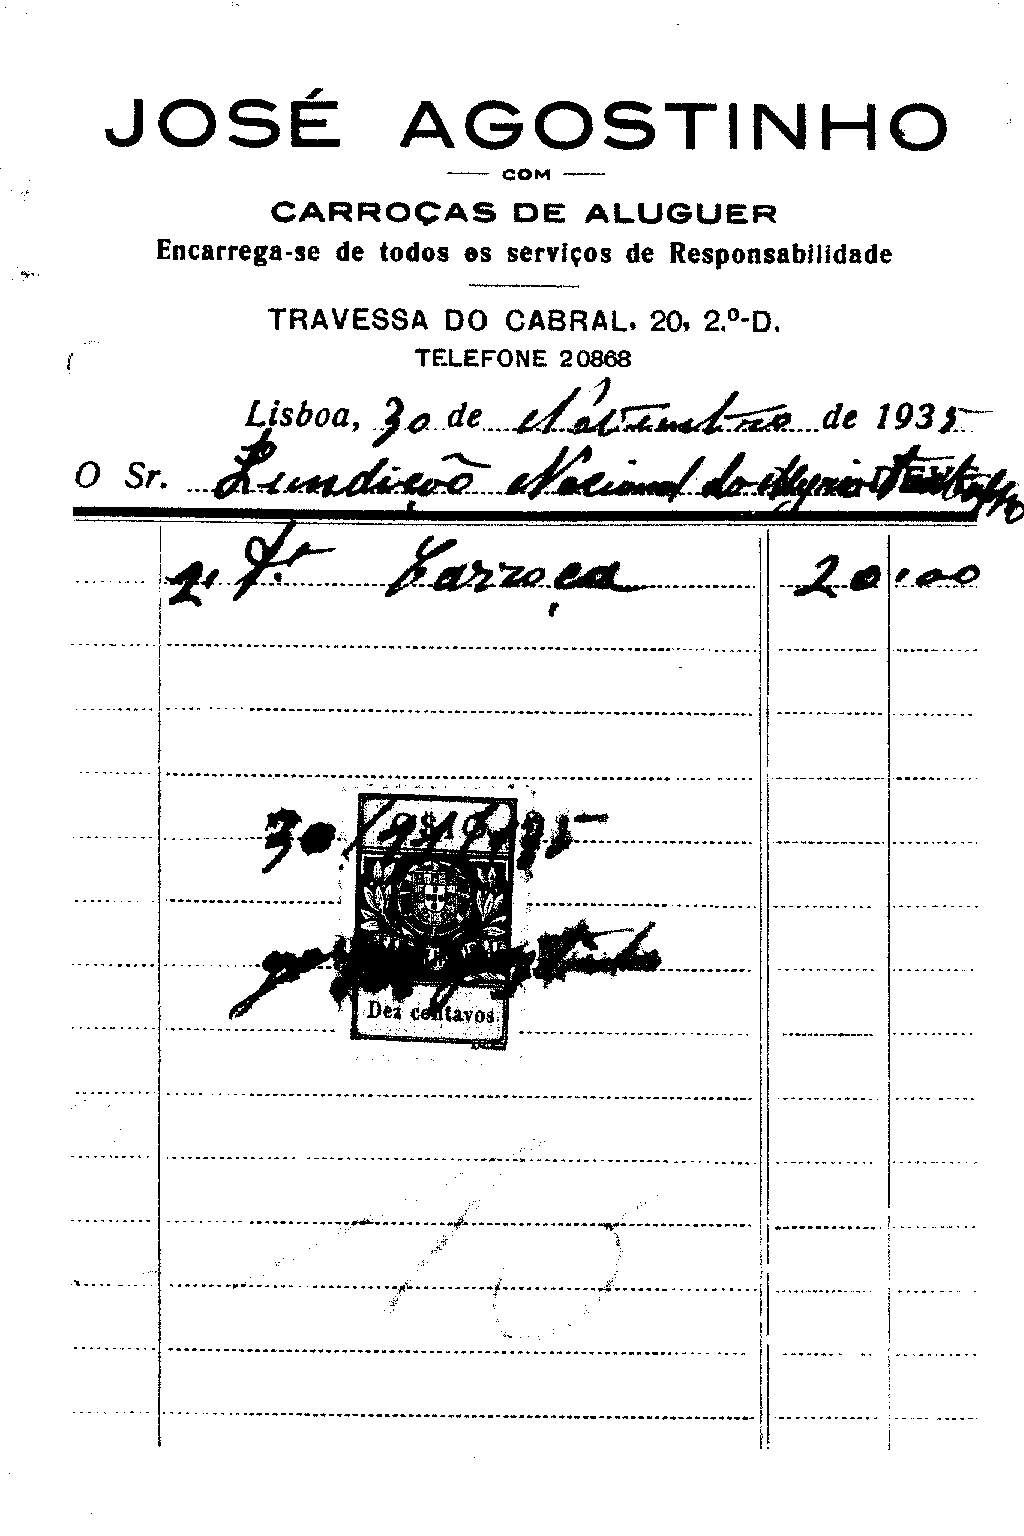 JOSÉ AGOSTINHO
COM
CARROÇAS DE ALUGUER
Encarrega-se de todos os serviços de Responsabilidade
TRAVESSA DO CABRAL, 20, 2.º-D.
TELEFONE 20868
Lisboa, 30 de Novembro de 1935
O Sr. Fundição Nacional do DEVE
2 Carroça 20.00
30/ /935
José Agostinho
Dez centavos